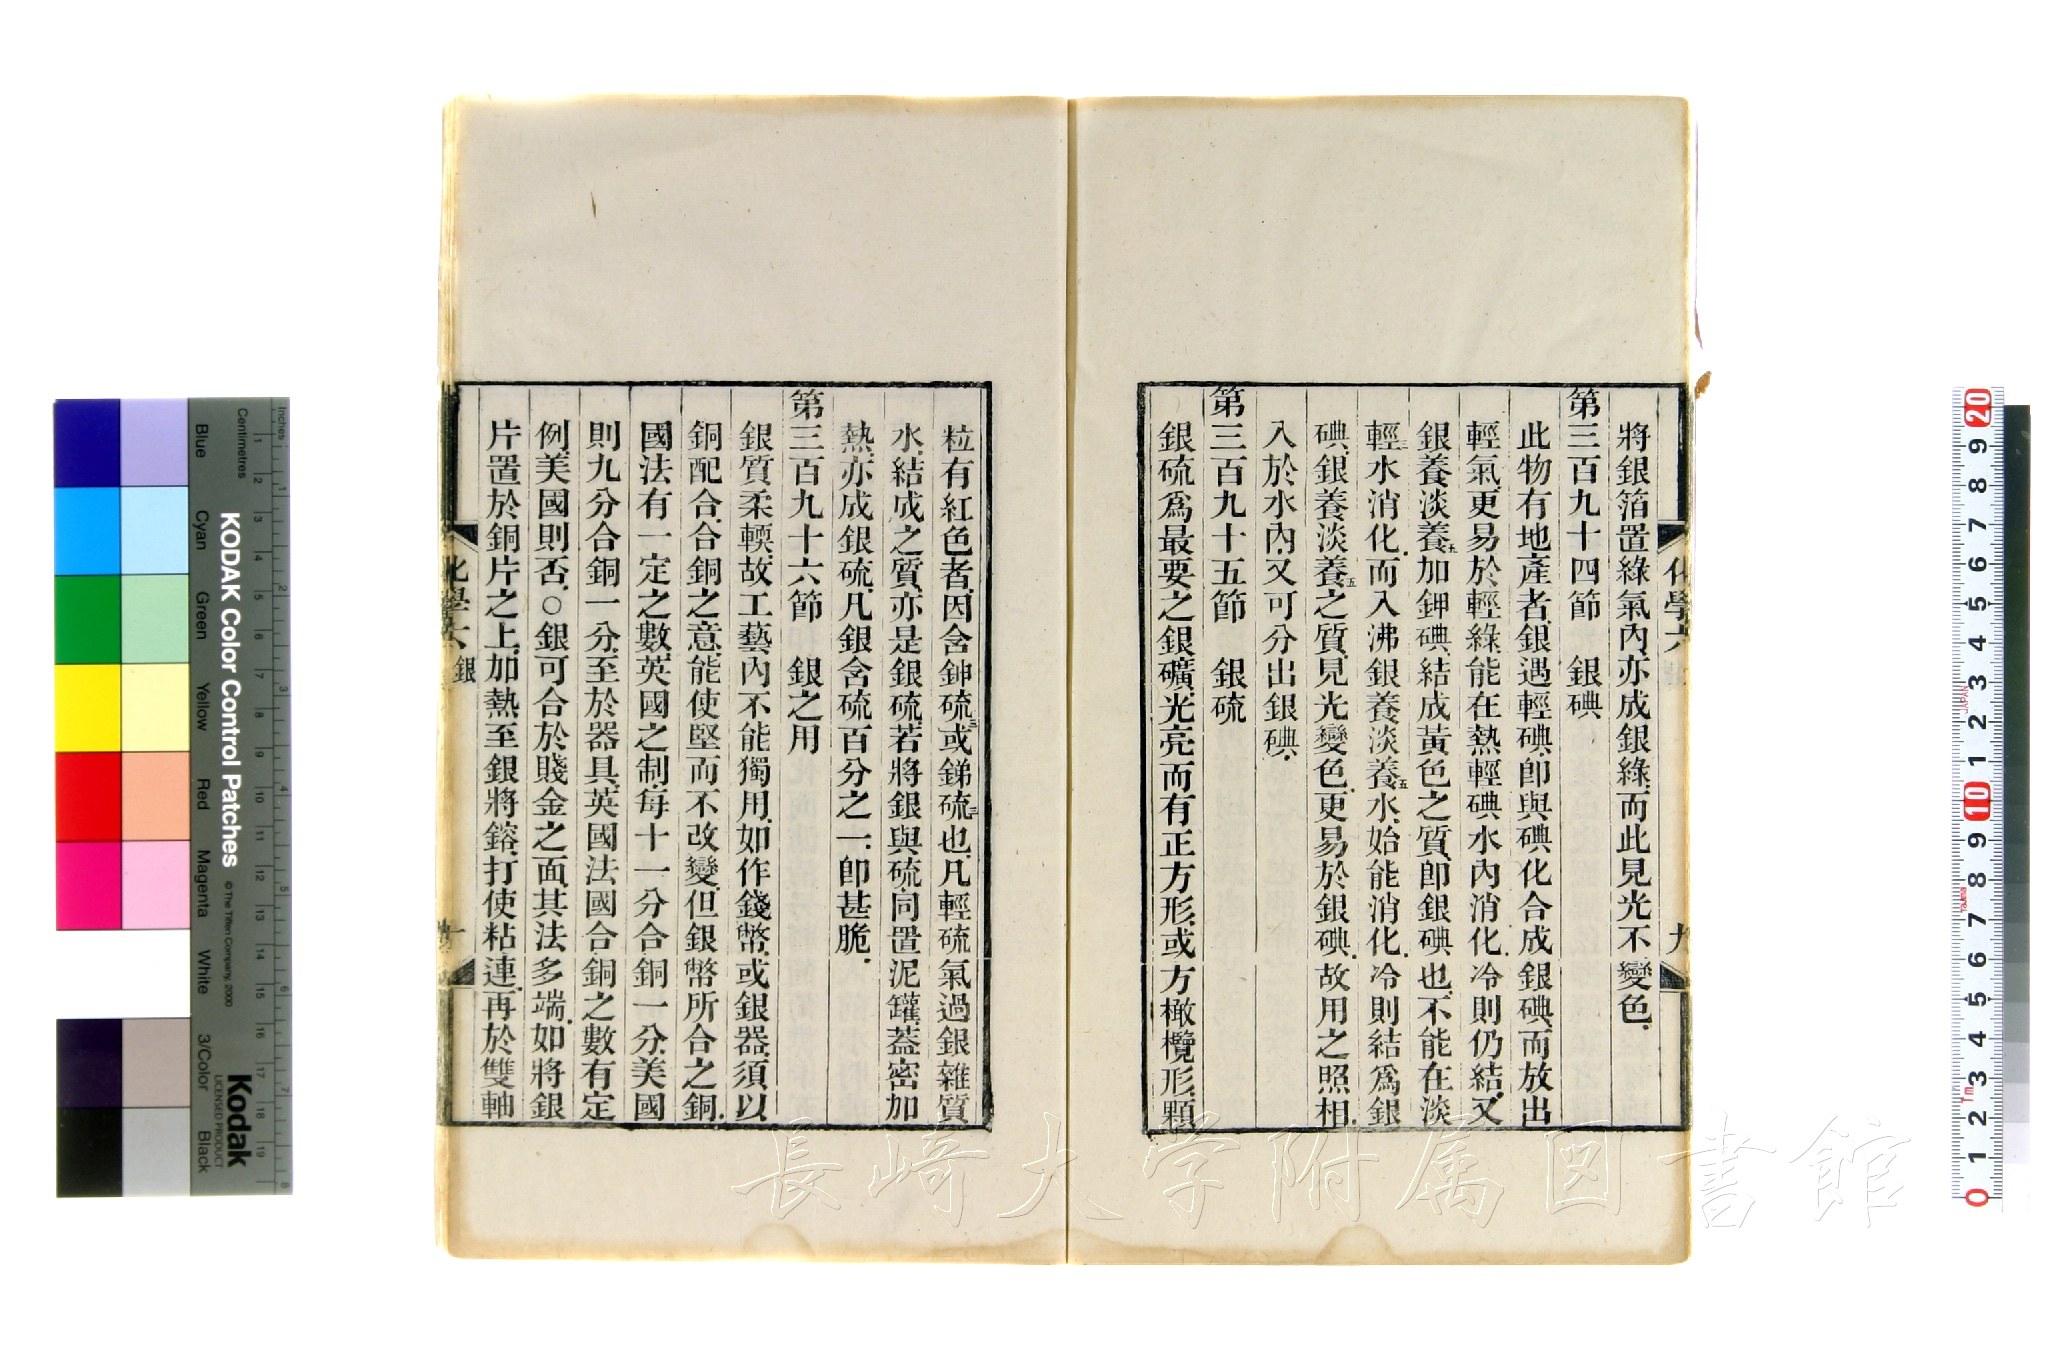 將銀箔置綠氣內、亦成銀綠、而此見光不變色、
第三百九十四節　銀碘
此物有地產者、銀遇輕碘、卽與碘化合成銀碘、而放出
輕氣、更易於輕綠、能在熱輕碘水內消化、冷則仍結、又
銀養淡養五加鉀碘、結成黃色之質、卽銀碘也、不能在淡
輕三水消化、而入沸銀養淡養五水、始能消化、冷則結爲銀
碘、銀養淡養五之質、見光變色、更易於銀碘、故用之照相、
入於水內、又可分出銀碘、
第三百九十五節　銀硫
銀硫爲最要之銀礦、光亮而有正方形、或方橄欖形、顆
化學六
九
粒有紅色者、因含鉮硫三或銻硫三也、凡輕硫氣過銀雜質
水、結成之質、亦是銀硫、若將銀與硫、同置泥罐、蓋密加
熱、亦成銀硫、凡銀含硫百分之一、卽甚脆、
第三百九十六節　銀之用
銀質柔輭、故工藝內不能獨用、如作錢幣、或銀器、須以
銅配合、合銅之意、能使堅而不改變、但銀幣所合之銅、
國法有一定之數、英國之制、每十一分合銅一分、美國
則九分合銅一分、至於器具、英國法國合銅之數有定
例、美國則否、○銀可合於賤金之面、其法多端、如將銀
片置於銅片之上、加熱至銀將鎔、打使粘連、再於雙軸
化學六　銀
KODAK Color Control Patches
© The Tiffen Company, 2000
Kodak
LICENSED PRODUCT
Inches
Centimetres
Blue
Cyan
Green
Yellow
Red
Magenta
White
3/Color
Black
JAPAN
Tajima
Tm
長崎大学附属図書館